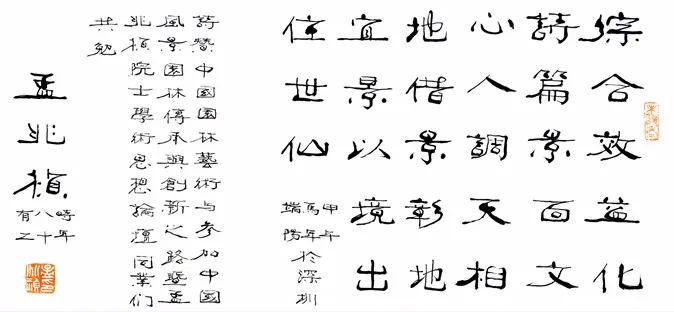 綜合效益化
詩篇景面文
心人調天相
地借景彰地
宜景以境出
住世仙
甲午
馬年
端陽
於深圳
詩贊中國園林藝術与參加中國
風景園林传承與創新之路暨孟
兆禎院士學術思想論壇同業们
共勉
孟兆禎
時年
八十
有